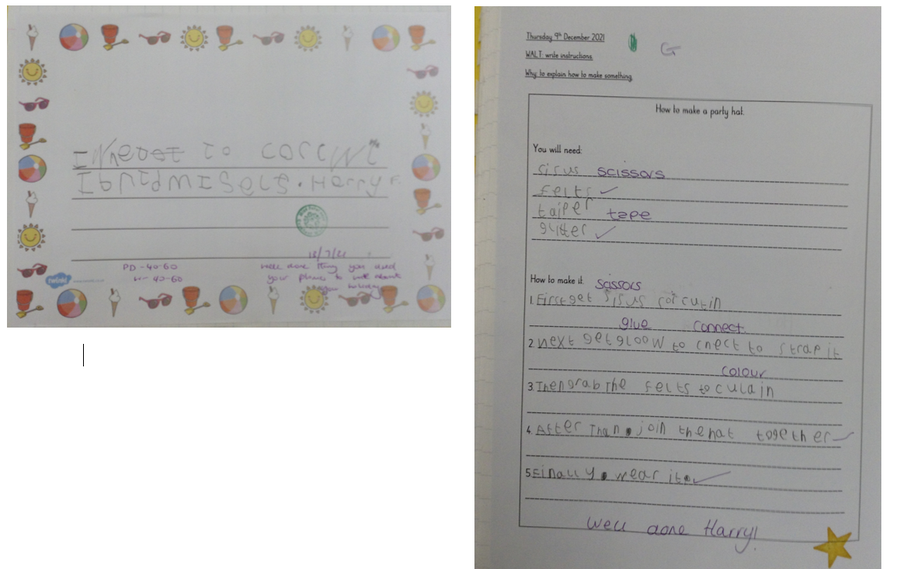 to
Harry F.
PD - 40-60
W - 40-60
Well done Harry you used
your phonics to write about
your holiday
Thursday 9th December 2021
G
WALT: write instructions.
Why: to explain how to make something.
How to make a party hat.
You will need:
sisus scissors
felts
taiper tape
glitter
How to make it. scissors
1. First get sisus for cutin
glue connect
2. next get gloow to cnect to strap it
colour
3. Then grab the felts to culain
4. After than, join the hat together
5. Finally, wear it.
Well done Harry!